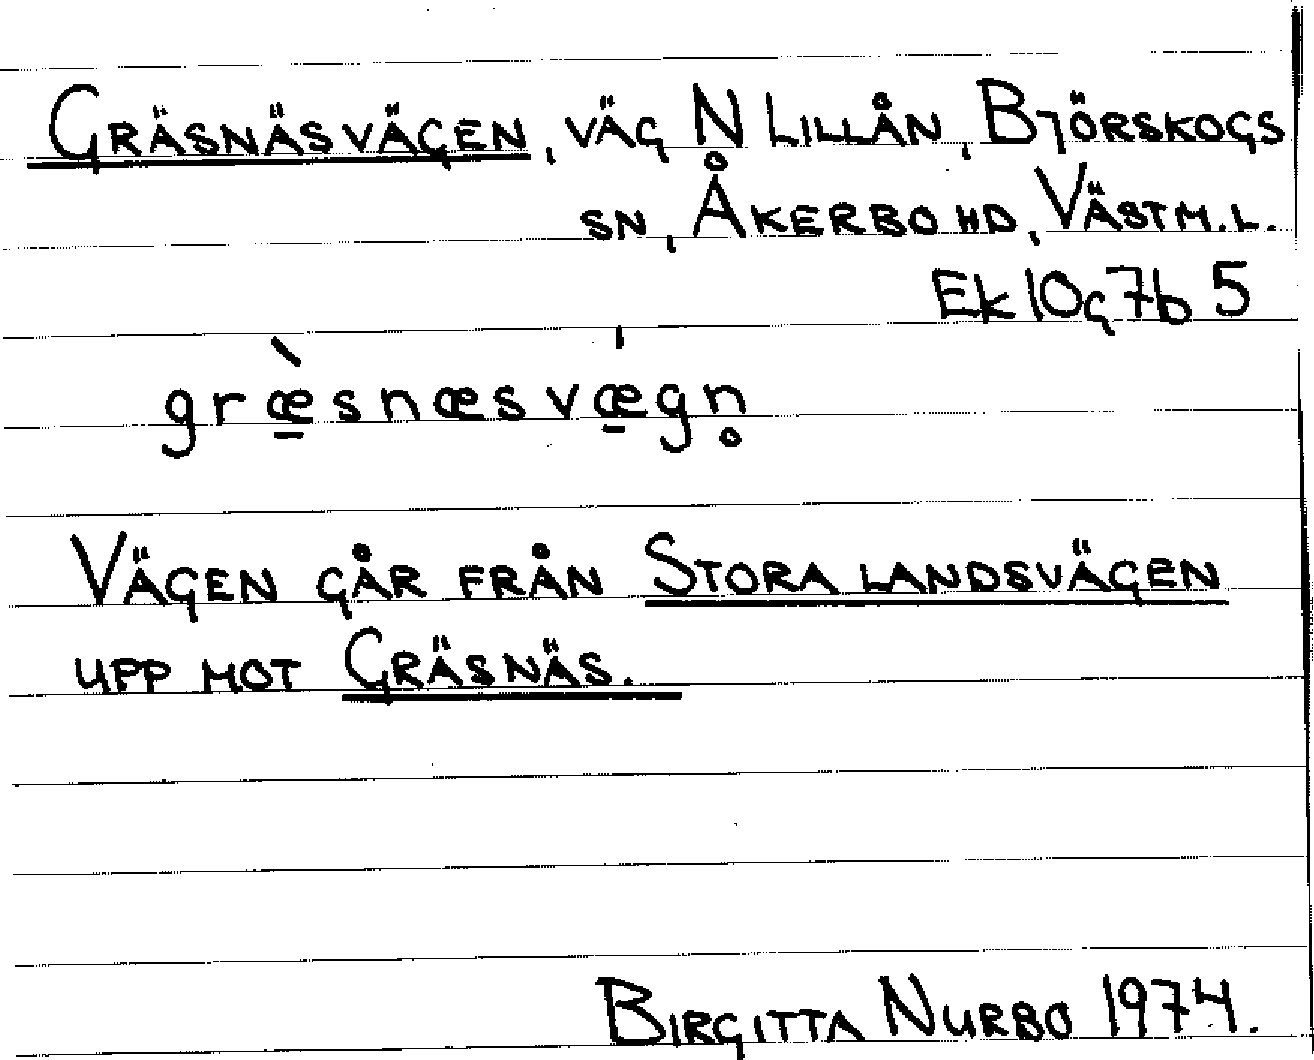 GRÄSNÄSVÄGEN, VÄG N LILLÅN, BJÖRSKOGS
SN, ÅKERBO HD, VÄSTM.L.
Ek 10g7b 5
græ̱̀snæsvǽ̱gn̥
VÄGEN GÅR FRÅN STORA LANDSVÄGEN
UPP MOT GRÄSNÄS.
BIRGITTA NURBO 1974.